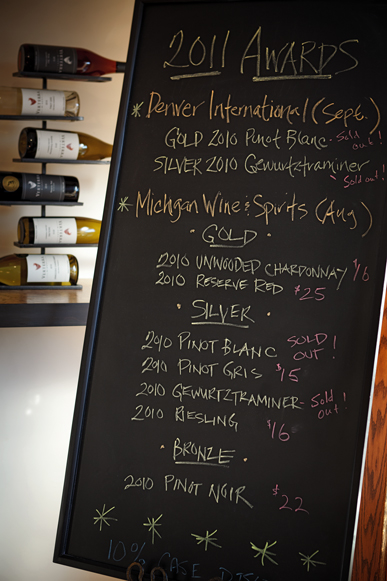 2011 AWARDS
* Denver International (Sept.)
GOLD 2010 Pinot Blanc - Sold out!
SILVER 2010 Gewurtztraminer
Sold out!
* Michgan Wine & Spirits (Aug)
· GOLD ·
2010 UNWOODED CHARDONNAY $16
2010 RESERVE RED $25
· SILVER ·
2010 PINOT BLANC SOLD OUT!
2010 PINOT GRIS $15
2010 GEWURTZTRAMINER - Sold out!
2010 RIESLING $16
· BRONZE ·
2010 PINOT NOIR $22
10% CASE